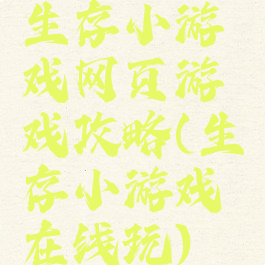 生存小游
戏网页游
戏攻略(生
存小游戏
在线玩)